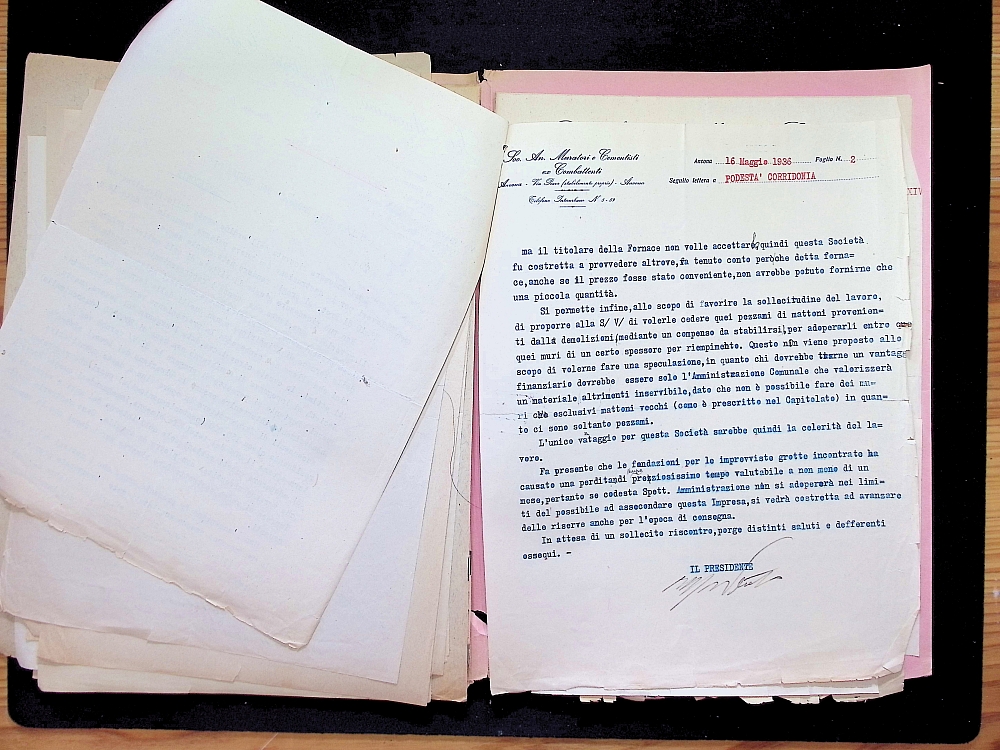 Soc. An. Muratori e Cementisti
ex Combattenti
Ancona - Via Piave (stabilimento proprio) - Ancona
Telefono Interurbano N. 5-59
Ancona 16 Maggio 1936 Foglio N. 2
Seguito lettera a PODESTA' CORRIDONIA
XIV
ma il titolare della Fornace non volle accettare, quindi questa Società
fu costretta a provvedere altrove, fa tenuto conto perochè detta forna=
ce, anche se il prezzo fosse stato conveniente, non avrebbe potuto fornirne che
una piccola quantità.
Si permette infine, allo scopo di favorire la sollecitudine del lavoro,
di proporre alla S/ V/ di volerle cedere quei pezzami di mattoni provenien=
ti dalla demolizioni (mediante un compenso da stabilirsi), per adoperarli entro
quei muri di un certo spessore per riempimento. Questo non viene proposto allo
scopo di volerne fare una speculazione, in quanto chi dovrebbe trarne un vantagg
finanziario dovrebbe essere solo l'Amministrazione Comunale che valorizzerà
un materiale altrimenti inservibile, dato che non è possibile fare dei mu=
ri che esclusivi mattoni vecchi (come è prescritto nel Capitolato) in quan=
to ci sono soltanto pezzami.
L'unico vataggio per questa Società sarebbe quindi la celerità del la=
voro.
Fa presente che le fondazioni per le improvviste grotte incontrate ha
causato una perdita di preziosissimo tempo valutabile a non meno di un
mese, pertanto se codesta Spett. Amministrazione non si adopererà nei limi=
ti del possibile ad assecondare questa Impresa, si vedrà costretta ad avanzare
delle riserve anche per l'epoca di consegna.
In attesa di un sollecito riscontro, porge distinti saluti e defferenti
ossequi. -
IL PRESIDENTE